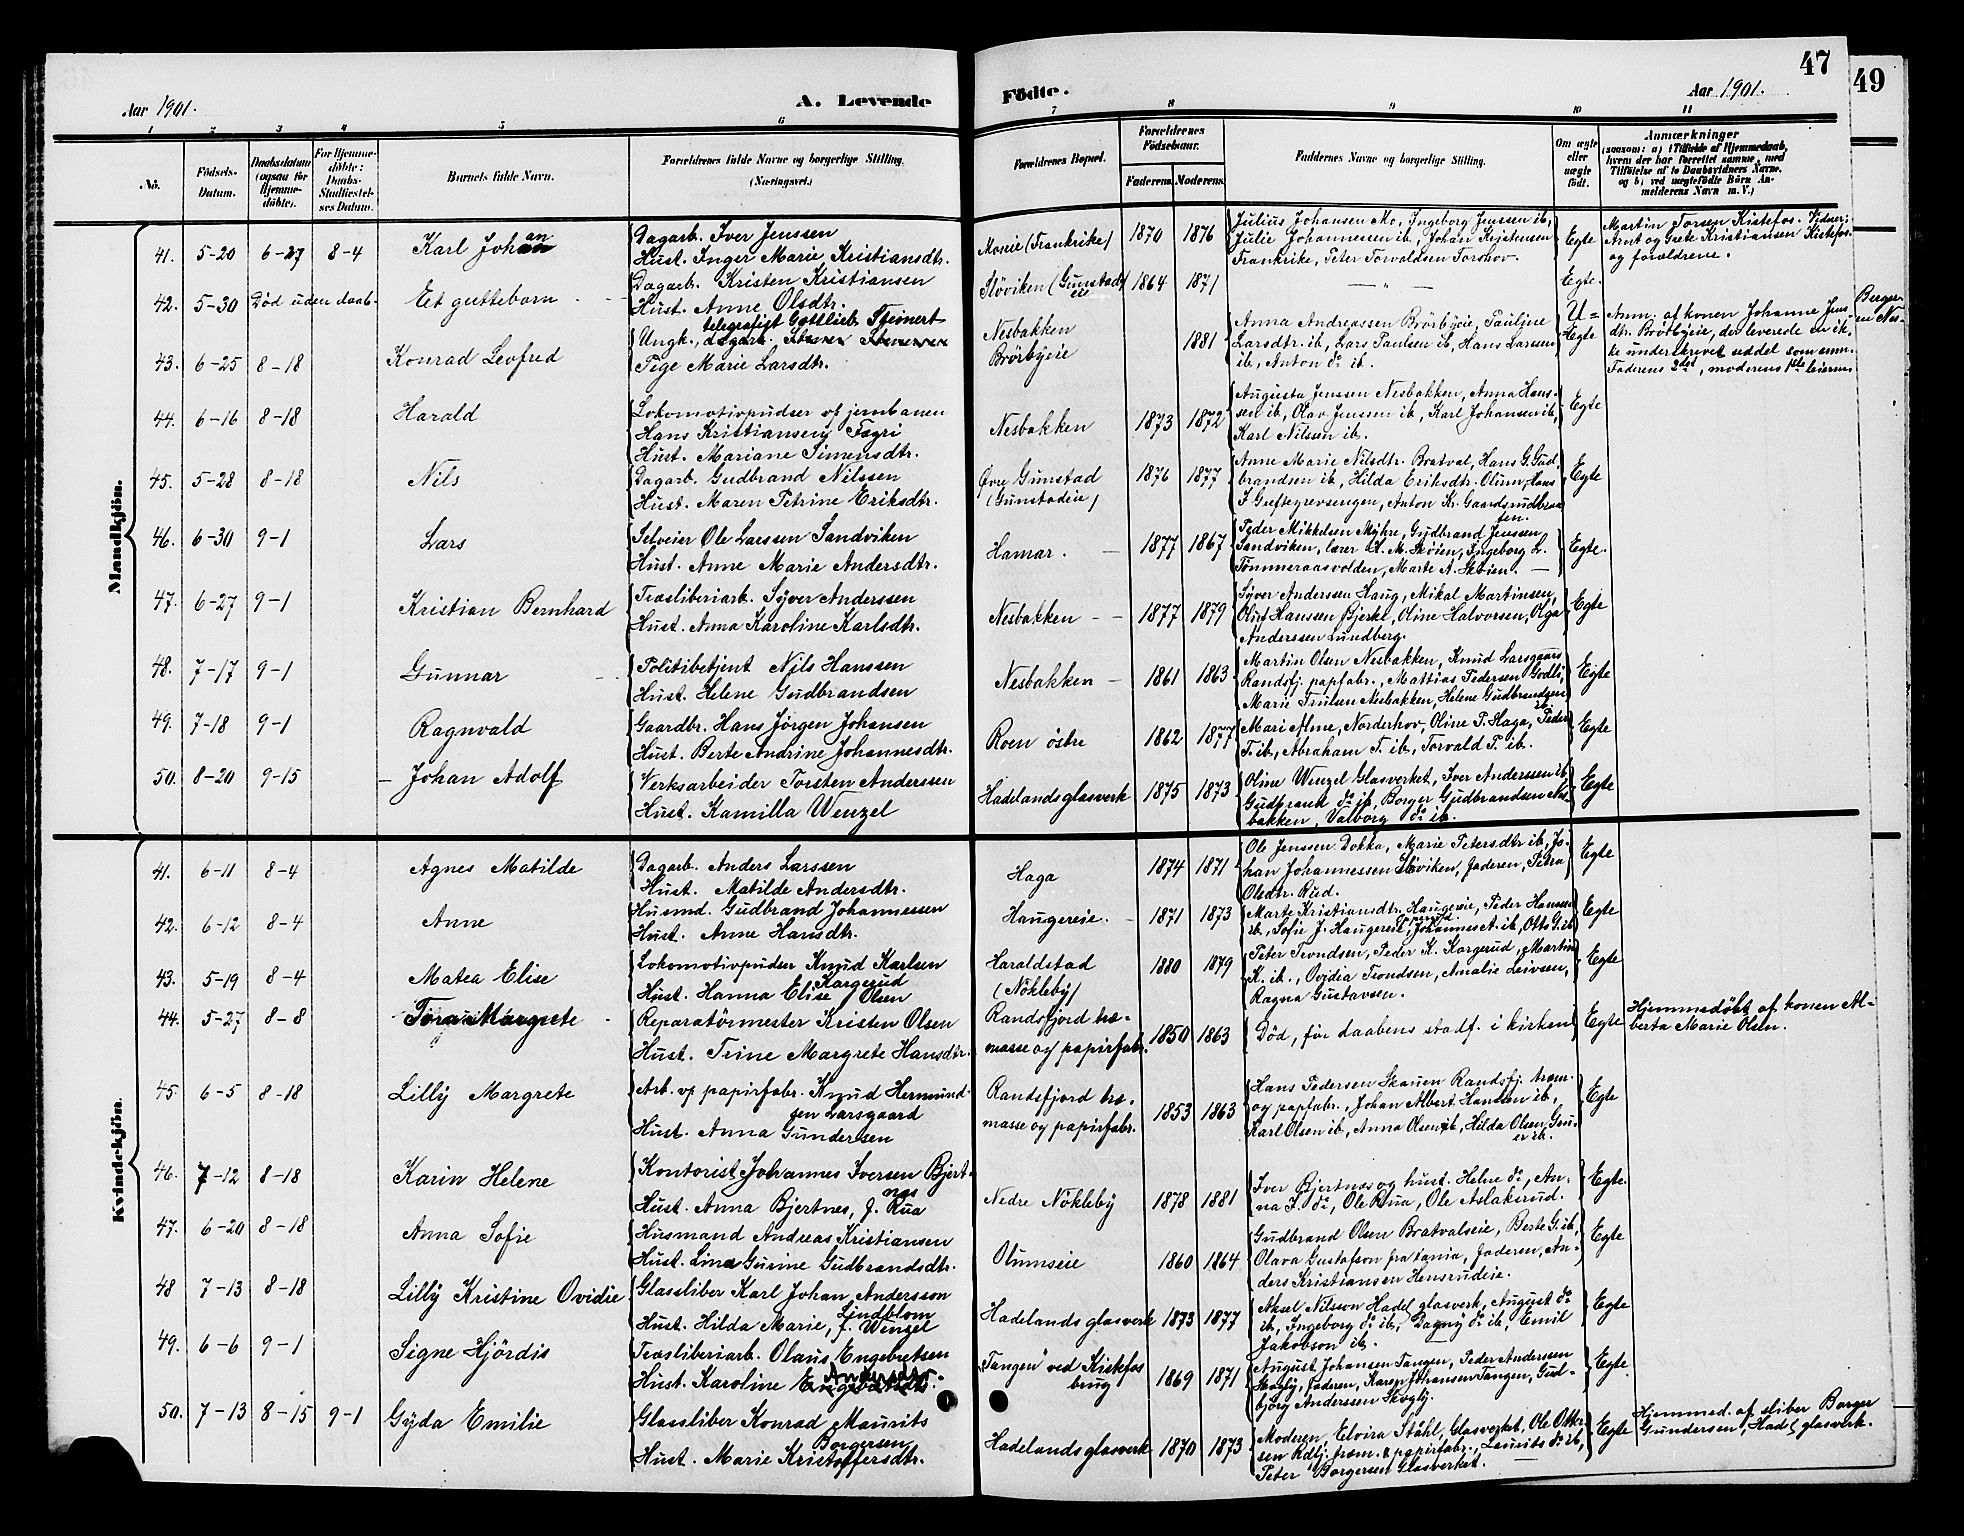 47
49
Aar 1901.
A. Levende
Födte.
Aar 1901.
1 2 3 4 5 6 7 8 9 10 11
No.
Födsels-
Datum.
Daabsdatum
(ogsaa for
Hjemme-
döbte).
For Hjemme-
döbte:
Daabs-
Stadfæstel-
ses Datum.
Barnets fulde Navn.
Forældrenes fulde Navne og borgerlige Stilling.
(Næringsvei.)
Forældrenes Bopæl.
Forældrenes
Födselsaar.
Faderens. Moderens.
Faddernes Navne og borgerlige Stilling.
Om ægte
eller
uægte
födt.
Anmærkninger
(saasom: a) i Tilfælde af Hjemmedaab,
hvem der har forrettet samme, med
Tilföielse af to Daabsvidners Navne,
og b) ved uægtefödte Börn An-
melderens Navn m. V.)
Mandkjön.
41. 5-20 6-27 8-4 Karl Johan
Dagarb. Iver Jenssen
Hust. Inger Marie Kristiansdtr.
Moeie (Frankrike) 1870 1876
Julius Johansen Mo, Ingeborg Jenssen ib,
Julie Johannesen ib, Johan Kristensen
Frankrike, Peter Torvaldsen Torshov.
Egte
Martin Torsen Kistefos. Vidner:
Arnt og Grete Kristiansen Kistefos
og forældrene.
42. 5-30 Död uden daab Eet guttebarn
Dagarb. Kristen Kristiansen
Hust. Anne Olsdtr.
Slöviken (Gunstad)
eie
1864 1871
— " —
Egte.
43. 6-25 8-18 Konrad Leofred
telegrafist Gottlieb Steinert
Ungk., dagarb.
Pige Marie Larsdtr.
Nesbakken
Brörbyeie
1881
Anna Andreassen Brörbyeie, Pauline
Larsdtr. ib, Lars Paulsen ib, Hans Larssen
ib, Anton do ib.
U-
Egte
Anm. af konen Johanne Jens-
dtr. Brörbyeie, der leverede en ik-
ke underskrevet seddel som anm.
Faderens 2det, moderens 1ste leierm
Berger-
en Nes-
44. 6-16 8-18 Harald
Lokomotivpudser v jernbanen
Hans Kristiansen Fagri
Hust. Mariane Simensdtr.
Nesbakken 1873 1872
Augusta Jenssen Nesbakken, Anna Hans-
sen ib, Olav Jenssen ib, Karl Johansen ib,
Karl Nilssen ib.
Egte
45. 5-28 8-18 Nils
Dagarb. Gudbrand Nilssen
Hust. Maren Petrine Eriksdtr.
Övre Gunstad
(Gunstadeie)
1876 1877
Anne Marie Nilsdtr. Bratval, Hans G. Gud-
brandsen ib, Hilda Eriksdtr. Olum, Hans
I. Greftegrevsengen, Anton Kr. Gaardsrudbraa-
ten.
Egte
46. 6-30 9-1 Lars
Selveier Ole Larssen Sandviken
Hust. Anne Marie Andersdtr.
Hamar. 1877 1867
Peder Mikkelsen Myhre, Gudbrand Jenssen
Sandviken, lærer A. M. Sköien, Ingeborg L.
Tömmeraasvolden, Marte A. Sköien.
Egte.
47. 6-27 9-1 Kristian Bernhard
Træsliberiarb. Syver Anderssen
Hust. Anna Karoline Karlsdtr.
Nesbakken 1877 1879
Syver Anderssen Haug, Mikal Martinsen,
Olus Hanssen Bjerke, Oline Halvorsen, Olga
Anderssen Lundberg.
Egte
48. 7-17 9-1 Gunnar
Politibetjent Nils Hanssen
Hust. Helene Gudbrandsen
Nesbakken 1861 1863
Martin Olsen Nesbakken, Knud Larsgaard
Randsfj. papfabr., Mattias Pedersen Godli,
Marie Trulsen Nesbakken, Helene Gudbrandsen
ib.
Egte
49. 7-18 9-1 Ragnvald
Gaardbr. Hans Jörgen Johansen
Hust. Berte Andrine Johannesdtr.
Roen östre 1862 1877
Mari Alme, Norderhov, Oline P. Haga, Peder
T. ib, Abraham T. ib, Torvald T. ib.
Egte
50. 8-20 9-15 Johan Adolf
Verksarbeider Torsten Anderssen
Hust. Kamilla Wenzel
Hadelands glasverk 1875 1873
Oline Wenzel Glasverket, Iver Anderssen ib
Gudbrand do ib, Borger Gudbrandsen Nes-
bakken, Valborg do ib.
Egte
Kvindekjön.
41. 6-11 8-4 Agnes Matilde
Dagarb. Anders Larssen
Hust. Matilde Andersdtr.
Haga 1874 1871
Ole Jenssen Dokka, Marie Petersdtr ib, Jo-
han Johannessen Slöviken, faderen, Petra
Olsdtr. Rud.
Egte
42. 6-12 8-4 Anne
Husmd. Gudbrand Johannessen
Hust. Anne Hansdtr.
Haugereie. 1871 1873
Marte Kristiansdtr. Haugereie, Peder Hansen
ib, Sofie J. Haugereie, Johannes A. ib, Otto G. ib
Egte
43. 5-19 8-4 Matea Elise
Lokomotivpudser Knud Karlsen
Kargerud
Hust. Hanna Elise Olsen
Haraldstad
(Nökleby)
1880 1879
Peter Trondsen, Peder K. Kargerud, Martin
K. ib., Ovidia Trondsen, Amalie Leivsen,
Ragna Gustavsen.
Egte
44. 5-27 8-8 Tora Margrete
Reparatörmester Kristen Olsen
Hust. Trine Margrete Hansdtr.
Randsfjord træ-
masse og papirfabr.
1850 1863
Död, för daabens stadf. i kirken
Egte
Hjemmedöbt af konen Al-
berta Marie Olsen.
45. 6-5 8-18 Lilly Margrete
Arb. v. papirfabr. Knud Hermund-
sen Larsgaard
Hust. Anna Gundersen
Randsfjord træ-
masse og papirfabr.
1853 1863
Hans Pedersen Skauen Randsfj. træm.
og papfabr., Johan Albert Hansen ib,
Karl Olsen ib, Anna Olsen ib, Hilda Olsen Gru-
er ib.
Egte
46. 7-12 8-18 Karin Helene
Kontorist Johannes Iversen Bjert-
næs
Hust. Anna Bjertnes, f. Rua
Nedre Nökleby 1878 1881
Iver Bjertnæs og hust. Helne do, An-
na I. do, Ole Rua, Ole Aslaksrud.
Egte.
47. 6-20 8-18 Anna Sofie
Husmand Andreas Kristiansen
Hust. Lina Gurine Gudbrandsdtr.
Olumseie 1860 1864
Gudbrand Olsen Bratvalseie, Berte G. ib,
Olava Gustafson fra Xania, faderen, An-
ders Kristiansen Hensrudeie.
Egte
48 7-13 8-18 Lilly Kristine Ovidie
Glassliber Karl Johan Andersson
Lindblom
Hust. Hilda Marie, f. Wenzel
Hadelands glasverk 1873 1877
Aksel Nilsson Hadel. glasverk, August do
ib, Ingeborg do ib, Dagny do ib, Emil
Jakobson ib.
Egte
49. 6-6 9-1 Signe Hjördis
Træsliberiarb. Olaus Engebretsen
Andersdtr.
Hust. Karoline Engebretsd.
"Tangen" ved Kistefos
brug
1869 1871
August Johansen Tangen, Peder Andersen
Skogly, faderen, Karen Johansen Tangen, Gud-
björg Andersen Skogly.
Egte.
50. 7-13 8-15 9-1 Gyda Emilie
Glassliber Konrad Maurits
Borgersen
Hust. Marie Kristoffersdtr.
Hadelands glasverk 1870 1873
Moderen, Elvira Ståhl, Glasverket, Ole Otter-
sen Rdfj. træm. & papirfabr., Laurits do ib,
Peter Borgersen Glasverket.
Egte
Hjemmed. af sliber Borger
Gundersen, Hadel. glasverk.